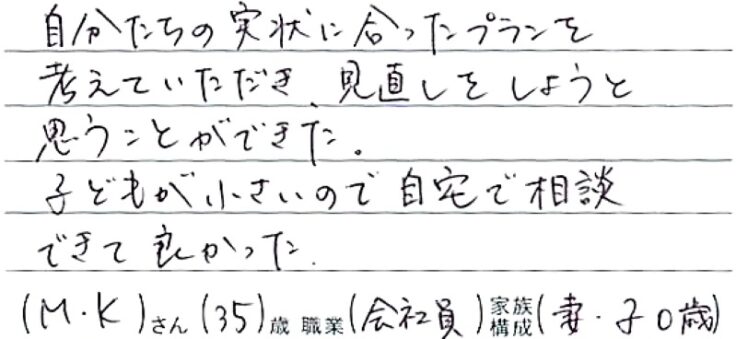 自分たちの実状に合ったプランを
考えていただき、見直しをしようと
思うことができた。
子どもが小さいので自宅で相談
できて良かった.
(M・K)さん(35)歳 職業(会社員)家族構成(妻・子0歳)